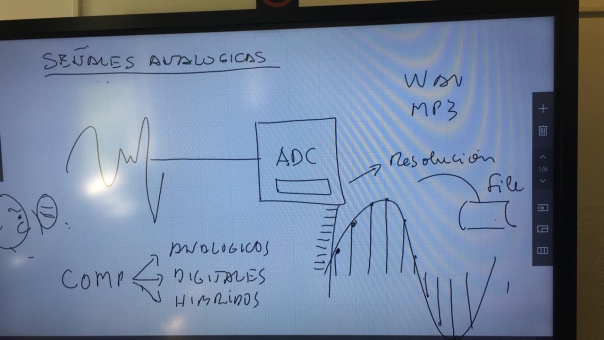 SEÑALES ANALOGICAS
WAV
MP3
ADC
Resolución
file
COMP
ANALOGICOS
DIGITALES
HIBRIDOS
1/6